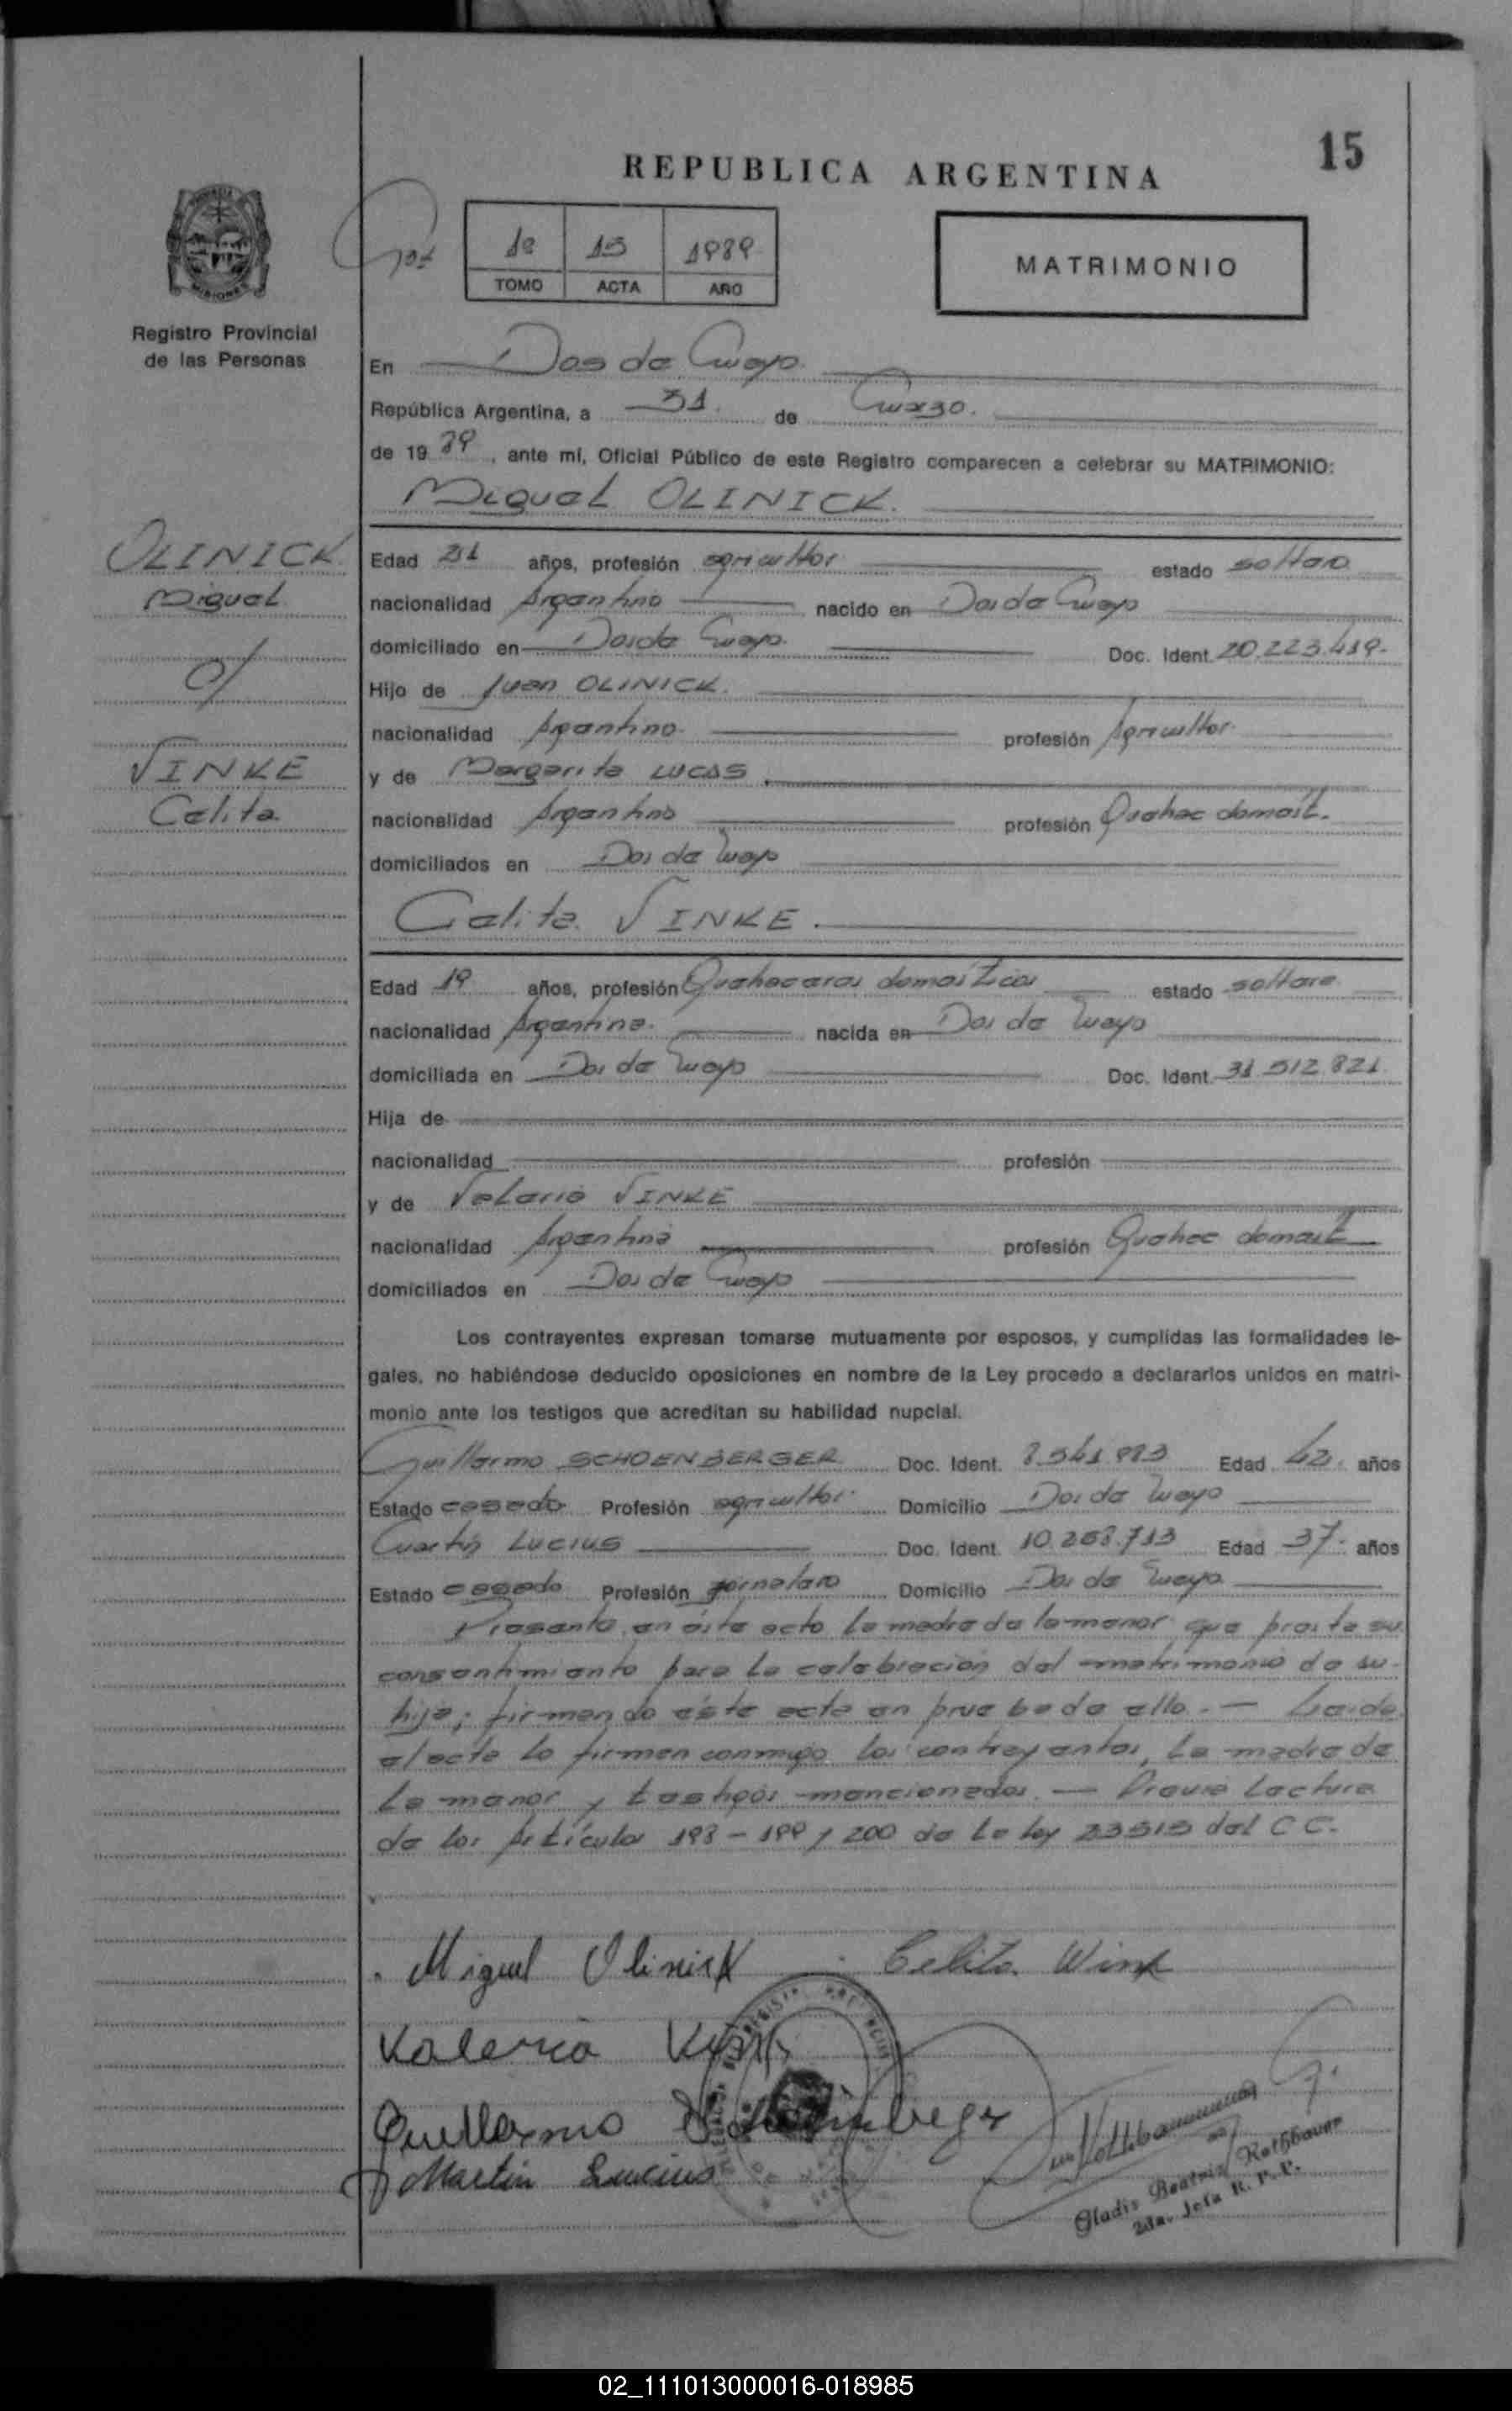 15
REPUBLICA ARGENTINA
1º 15 1989
TOMO ACTA AÑO
MATRIMONIO
MISIONES
Registro Provincial
de las Personas
En Dos de Mayo
República Argentina, a 31 de Marzo.
de 19 89, ante mí, Oficial Público de este Registro comparecen a celebrar su MATRIMONIO:
Miguel OLINICK.
OLINICK
Miguel
c/
VINKE
Celita
Edad 21 años, profesión agricultor estado soltero
nacionalidad Argentino nacido en Dos de Mayo
domiciliado en Dos de Mayo. Doc. Ident. 20.223.419.
Hijo de Juan OLINICK.
nacionalidad Argentino profesión Agricultor
y de Margarita LUCAS
nacionalidad Argentina profesión Quehac domést.
domiciliados en Dos de Mayo
Celita VINKE.
Edad 19 años, profesión Quehaceres domésticos estado soltera
nacionalidad Argentina. nacida en Dos de Mayo
domiciliada en Dos de Mayo Doc. Ident. 31.512.821.
Hija de
nacionalidad profesión
y de Valeria VINKE
nacionalidad Argentina profesión Quehac domést
domiciliados en Dos de Mayo
Los contrayentes expresan tomarse mutuamente por esposos, y cumplidas las formalidades le-
gales, no habiéndose deducido oposiciones en nombre de la Ley procedo a declararlos unidos en matri-
monio ante los testigos que acreditan su habilidad nupcial.
Guillermo SCHOENBERGER Doc. Ident. 8.541.993 Edad 42. años
Estado casado Profesión agricultor. Domicilio Dos de Mayo
Martín LUCIUS Doc. Ident. 10.268.713 Edad 37. años
Estado casado Profesión jornalero Domicilio Dos de Mayo
Presente en éste acto la madre de la menor que presta su
consentimiento para la celebración del matrimonio de su
hija; firmando éste acta en prueba de ello. — Leída
el acta la firman conmigo los contrayentes, la madre de
la menor y testigos mencionados. — Previa Lectura
de los Artículos 198 - 199 y 200 de la ley 23515 del C C.
Miguel Olinick Celita Wink
Valeria
Guillermo
Martin Lucius
Gladis Beatriz Rothbauer
2da. Jefa R. P. P.
02_111013000016-018985